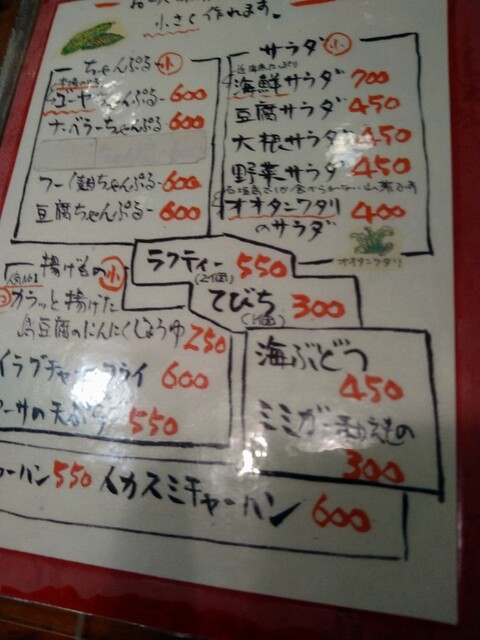 小さく作れます。
ちゃんぷる 小
ゴーヤーちゃんぷるー 600
ナーベラーちゃんぷる 600
フー(麩)ちゃんぷるー 600
豆腐ちゃんぷるー 600
サラダ 小
海鮮サラダ 700
豆腐サラダ 450
大根サラダ 450
野菜サラダ 450
オオタニワタリ 400
のサラダ
オオタニワタリ
ラフティー 550
(2個)
てびち 300
(1個)
揚げもの 小
人気No.1
カラッと揚げた
島豆腐のにんにくじょうゆ 250
イラブチャー フライ 600
ーサの天ぷら 550
海ぶどう
450
ミミガー和えもの
300
ャーハン 550 イカスミチャーハン 600